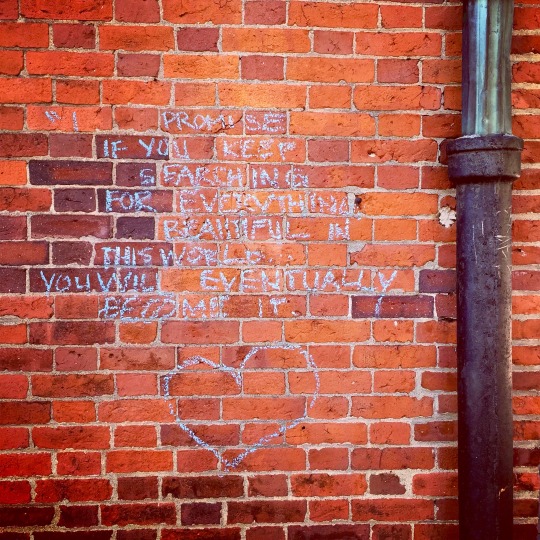 "I PROMISE
IF YOU KEEP
SEARCHING
FOR EVERYTHING
BEAUTIFUL IN
THIS WORLD...
YOU WILL EVENTUALLY
BECOME IT."